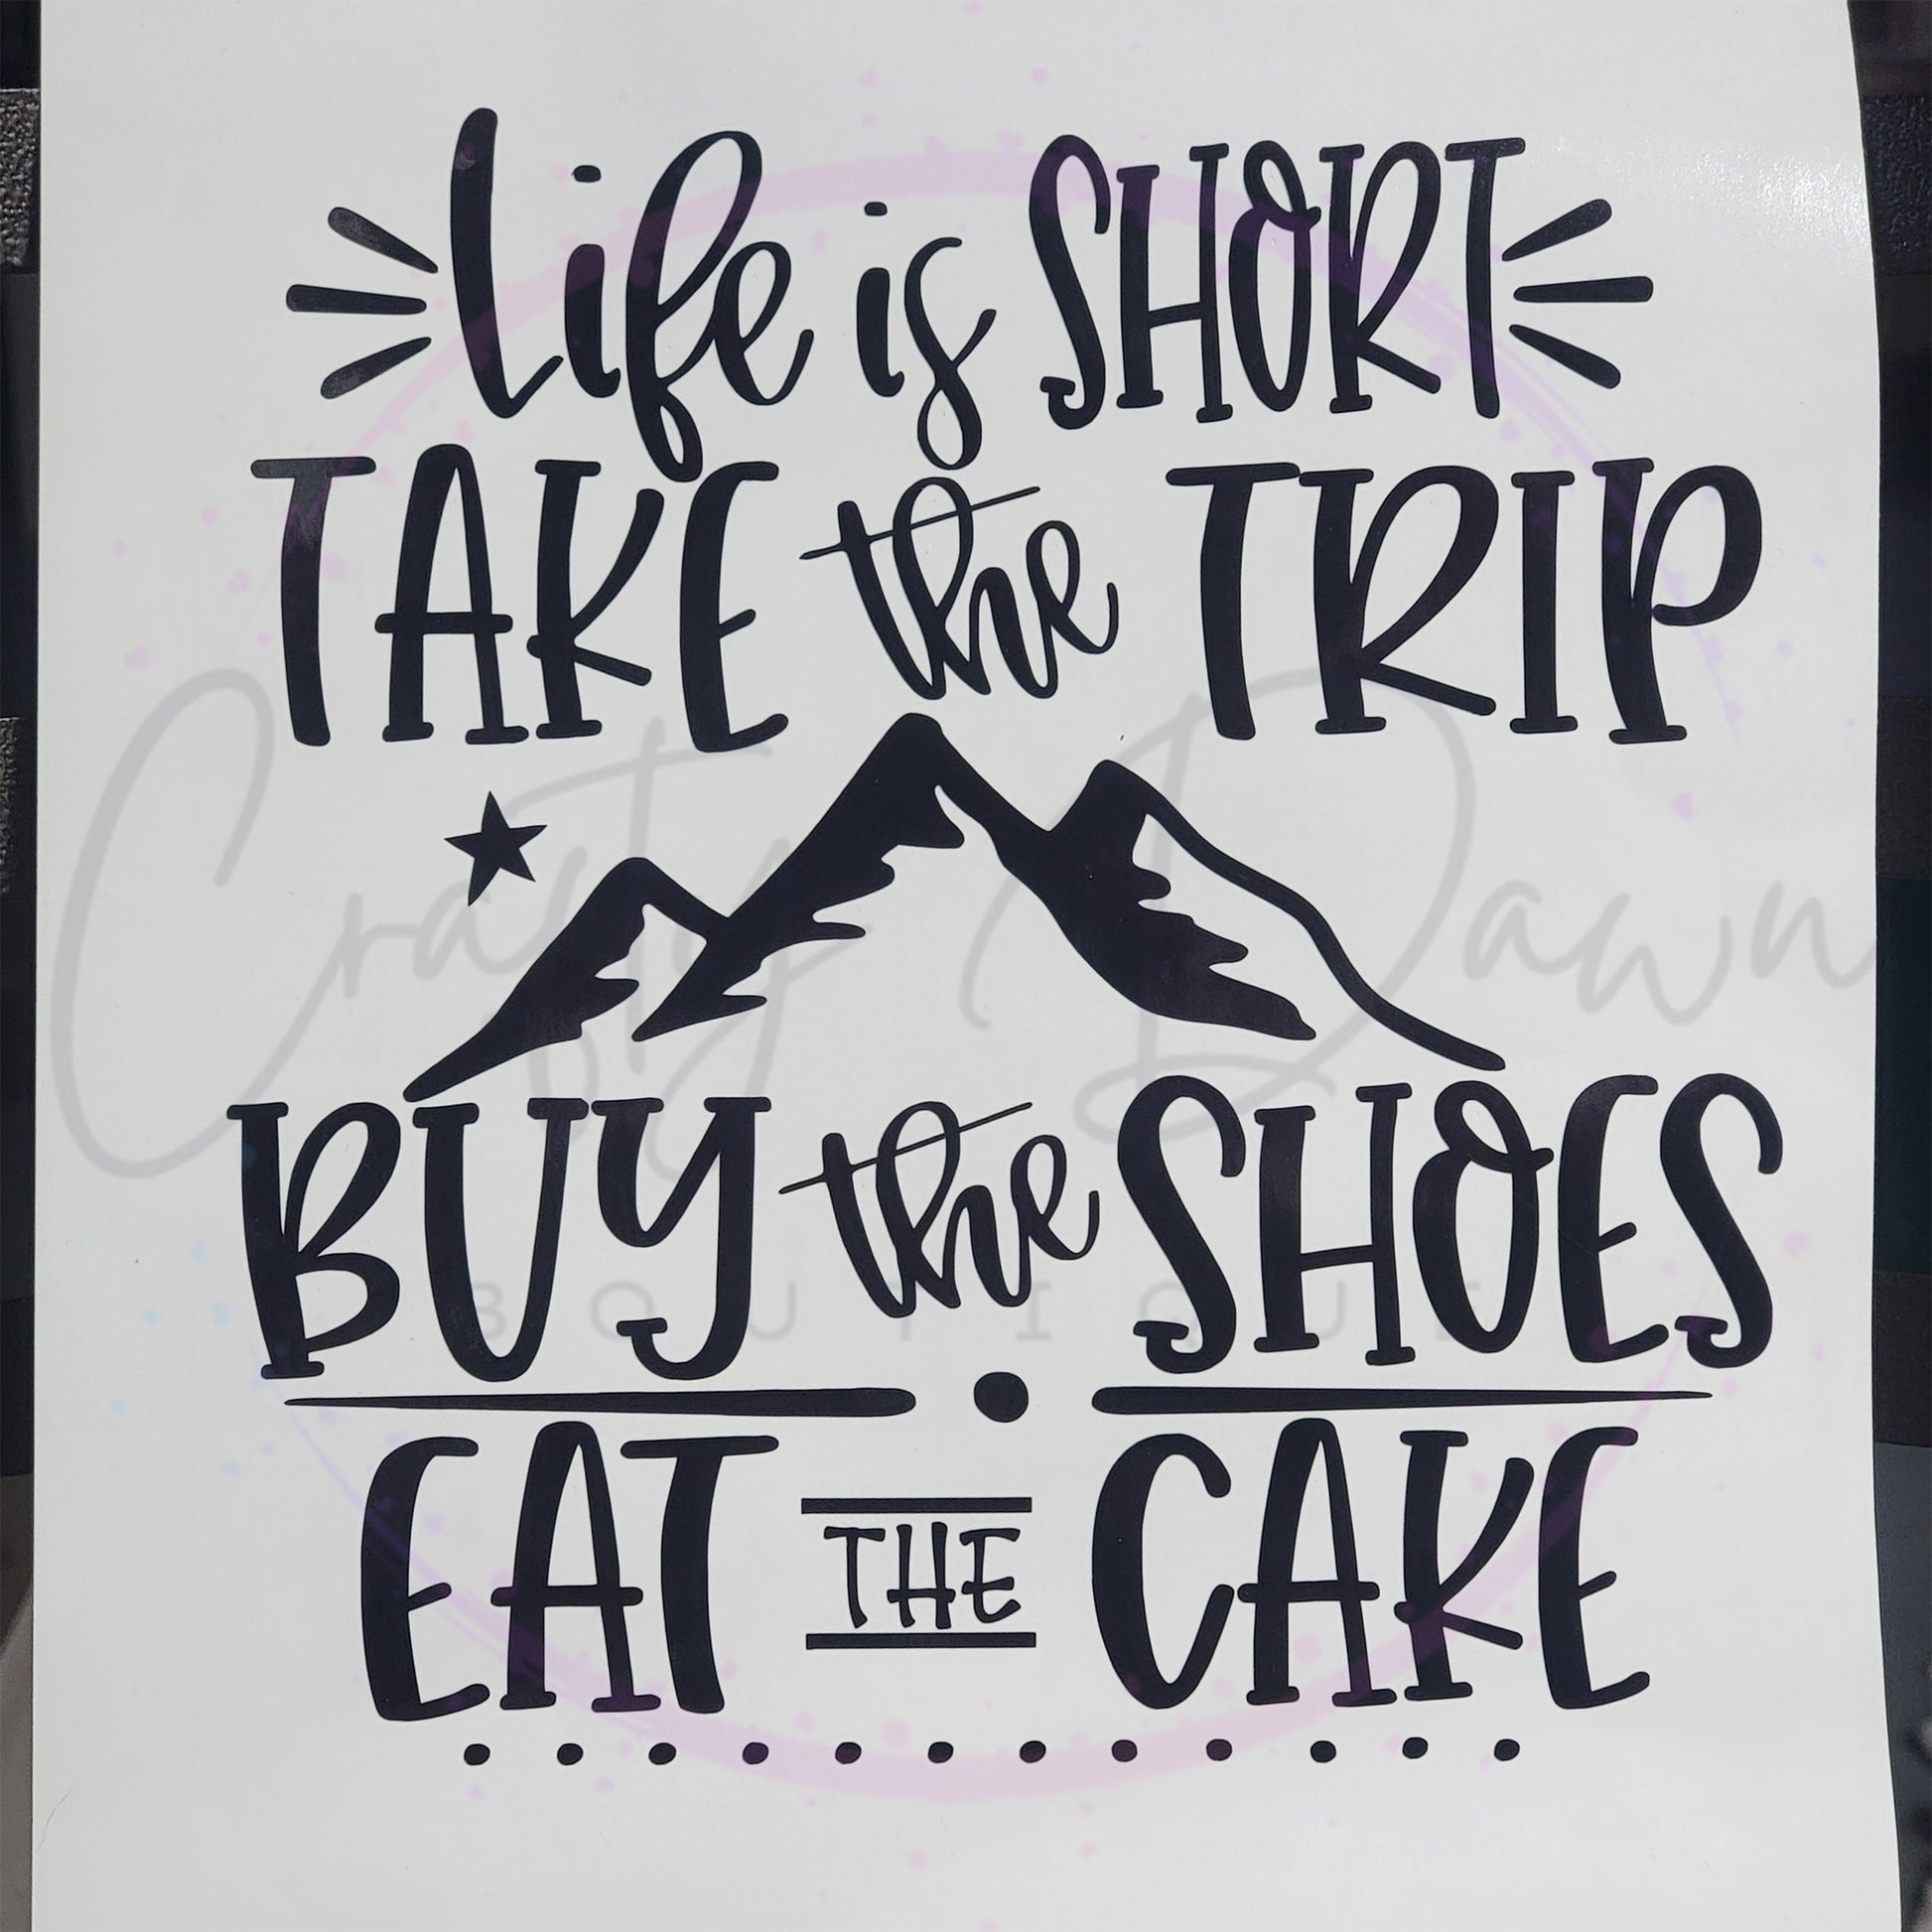 Life is SHORT
TAKE the TRIP
Crafty Dawn
BUY the SHOES
BOUTIQUE
EAT THE CAKE